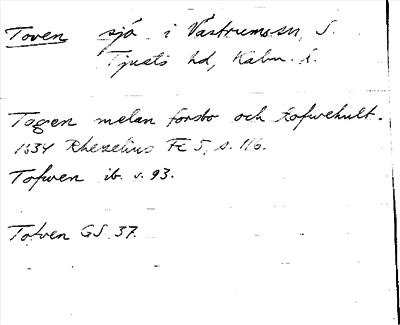 Toven sjö i Västrums sn, S.
Tjusts hd, Kalm. l.
Togen melan forsbo och Kofwehult.
1634 Rhezelius Fc 5, s. 116.
Tofwen ib. s. 93.
Totven GS 37.